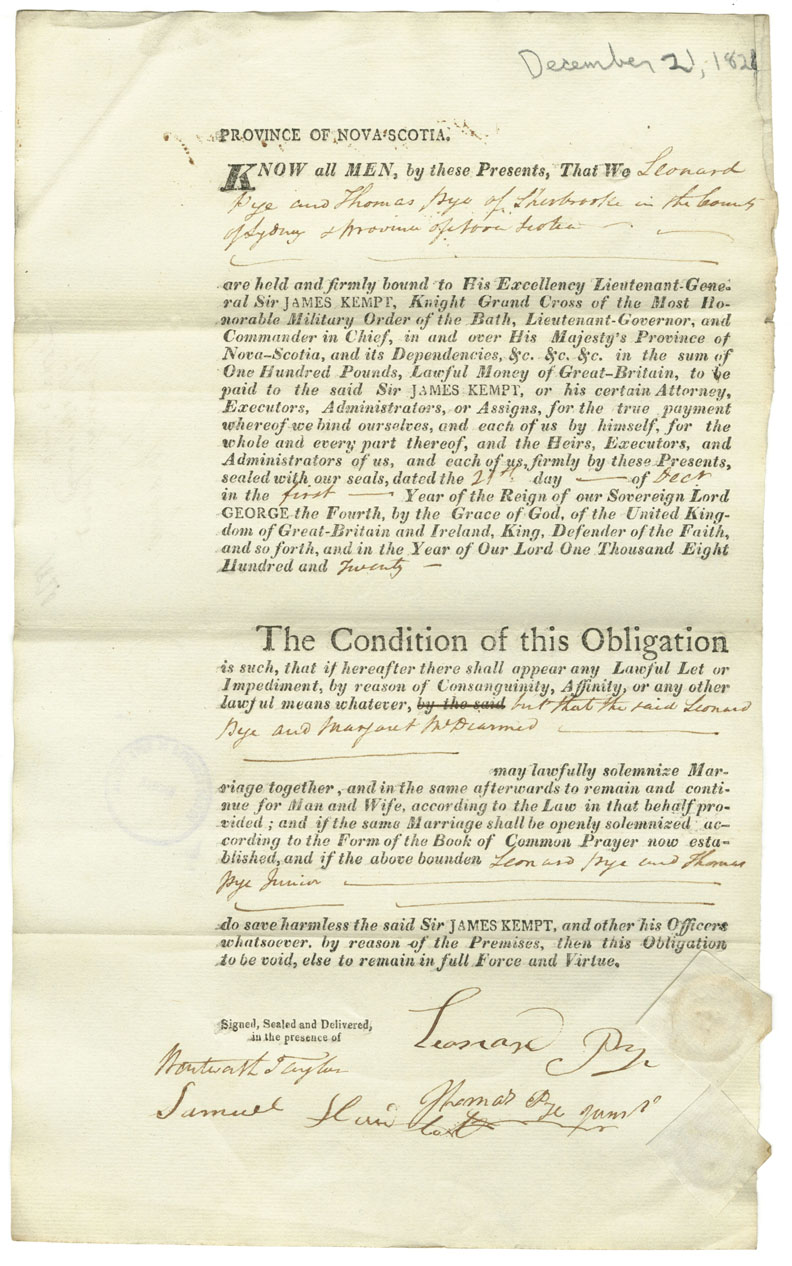 December 21, 182
PROVINCE OF NOVA-SCOTIA.
KNOW all MEN, by these Presents, That We Leonard
Pye and Thomas Pye of Sherbrooke in the County
of Sydney & Province of Nova Scotia
are held and firmly bound to His Excellency Lieutenant-Gene-
ral Sir JAMES KEMPT, Knight Grand Cross of the Most Ho-
norable Military Order of the Bath, Lieutenant-Governor, and
Commander in Chief, in and over His Majesty's Province of
Nova-Scotia, and its Dependencies, &c. &c. &c. in the sum of
One Hundred Pounds, Lawful Money of Great-Britain, to be
paid to the said Sir JAMES KEMPT, or his certain Attorney,
Executors, Administrators, or Assigns, for the true payment
whereof we bind ourselves, and each of us by himself, for the
whole and every part thereof, and the Heirs, Executors, and
Administrators of us, and each of us, firmly by these Presents,
sealed with our seals, dated the 21st day — of Decr
in the first — Year of the Reign of our Sovereign Lord
GEORGE the Fourth, by the Grace of God, of the United King-
dom of Great-Britain and Ireland, King, Defender of the Faith,
and so forth, and in the Year of Our Lord One Thousand Eight
Hundred and Twenty —
The Condition of this Obligation
is such, that if hereafter there shall appear any Lawful Let or
Impediment, by reason of Consanguinity, Affinity, or any other
lawful means whatever, by the said but that the said Leonard
Pye and Margaret McDearmed
may lawfully solemnize Mar-
riage together, and in the same afterwards to remain and conti-
nue for Man and Wife, according to the Law in that behalf pro-
vided; and if the same Marriage shall be openly solemnized ac-
cording to the Form of the Book of Common Prayer now esta-
blished, and if the above bounden Leonard Pye and Thomas
Pye Junior
do save harmless the said Sir JAMES KEMPT, and other his Officers
whatsoever. by reason of the Premises, then this Obligation
to be void, else to remain in full Force and Virtue.
Signed, Sealed and Delivered,
in the presence of
Leonard Pye
Wentworth Taylor
Samuel
Thomas Pye junr